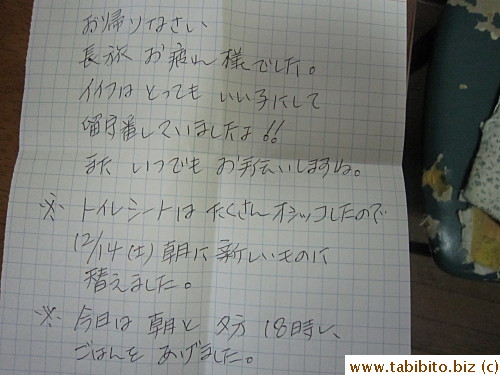 お帰りなさい
長旅 お疲れ様でした。
イイフは とっても いい子にして
留守番していましたよ!!
また いつでも お手伝いしますね。
※ トイレシートは たくさん オシッコしたので
12/14(土)朝に 新しいものに
替えました。
※ 今日は 朝と 夕方 18時に、
ごはんを あげました。
www.tabibito.biz (c)